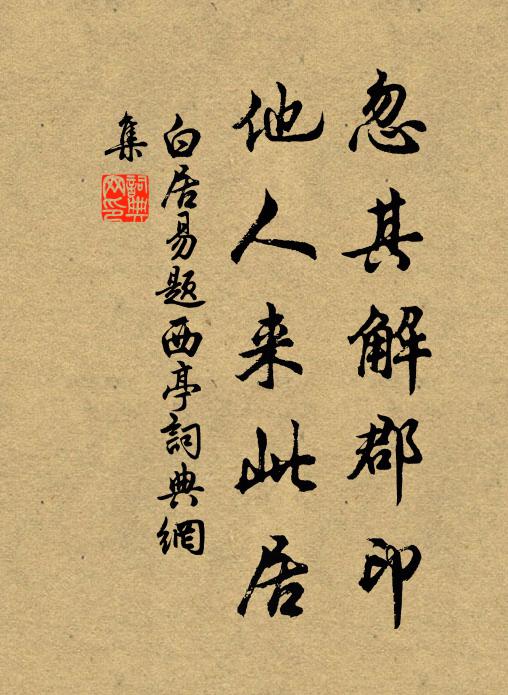 忽其解郡印
他人来此居
白居易题西亭詞典網
集
詞典網印